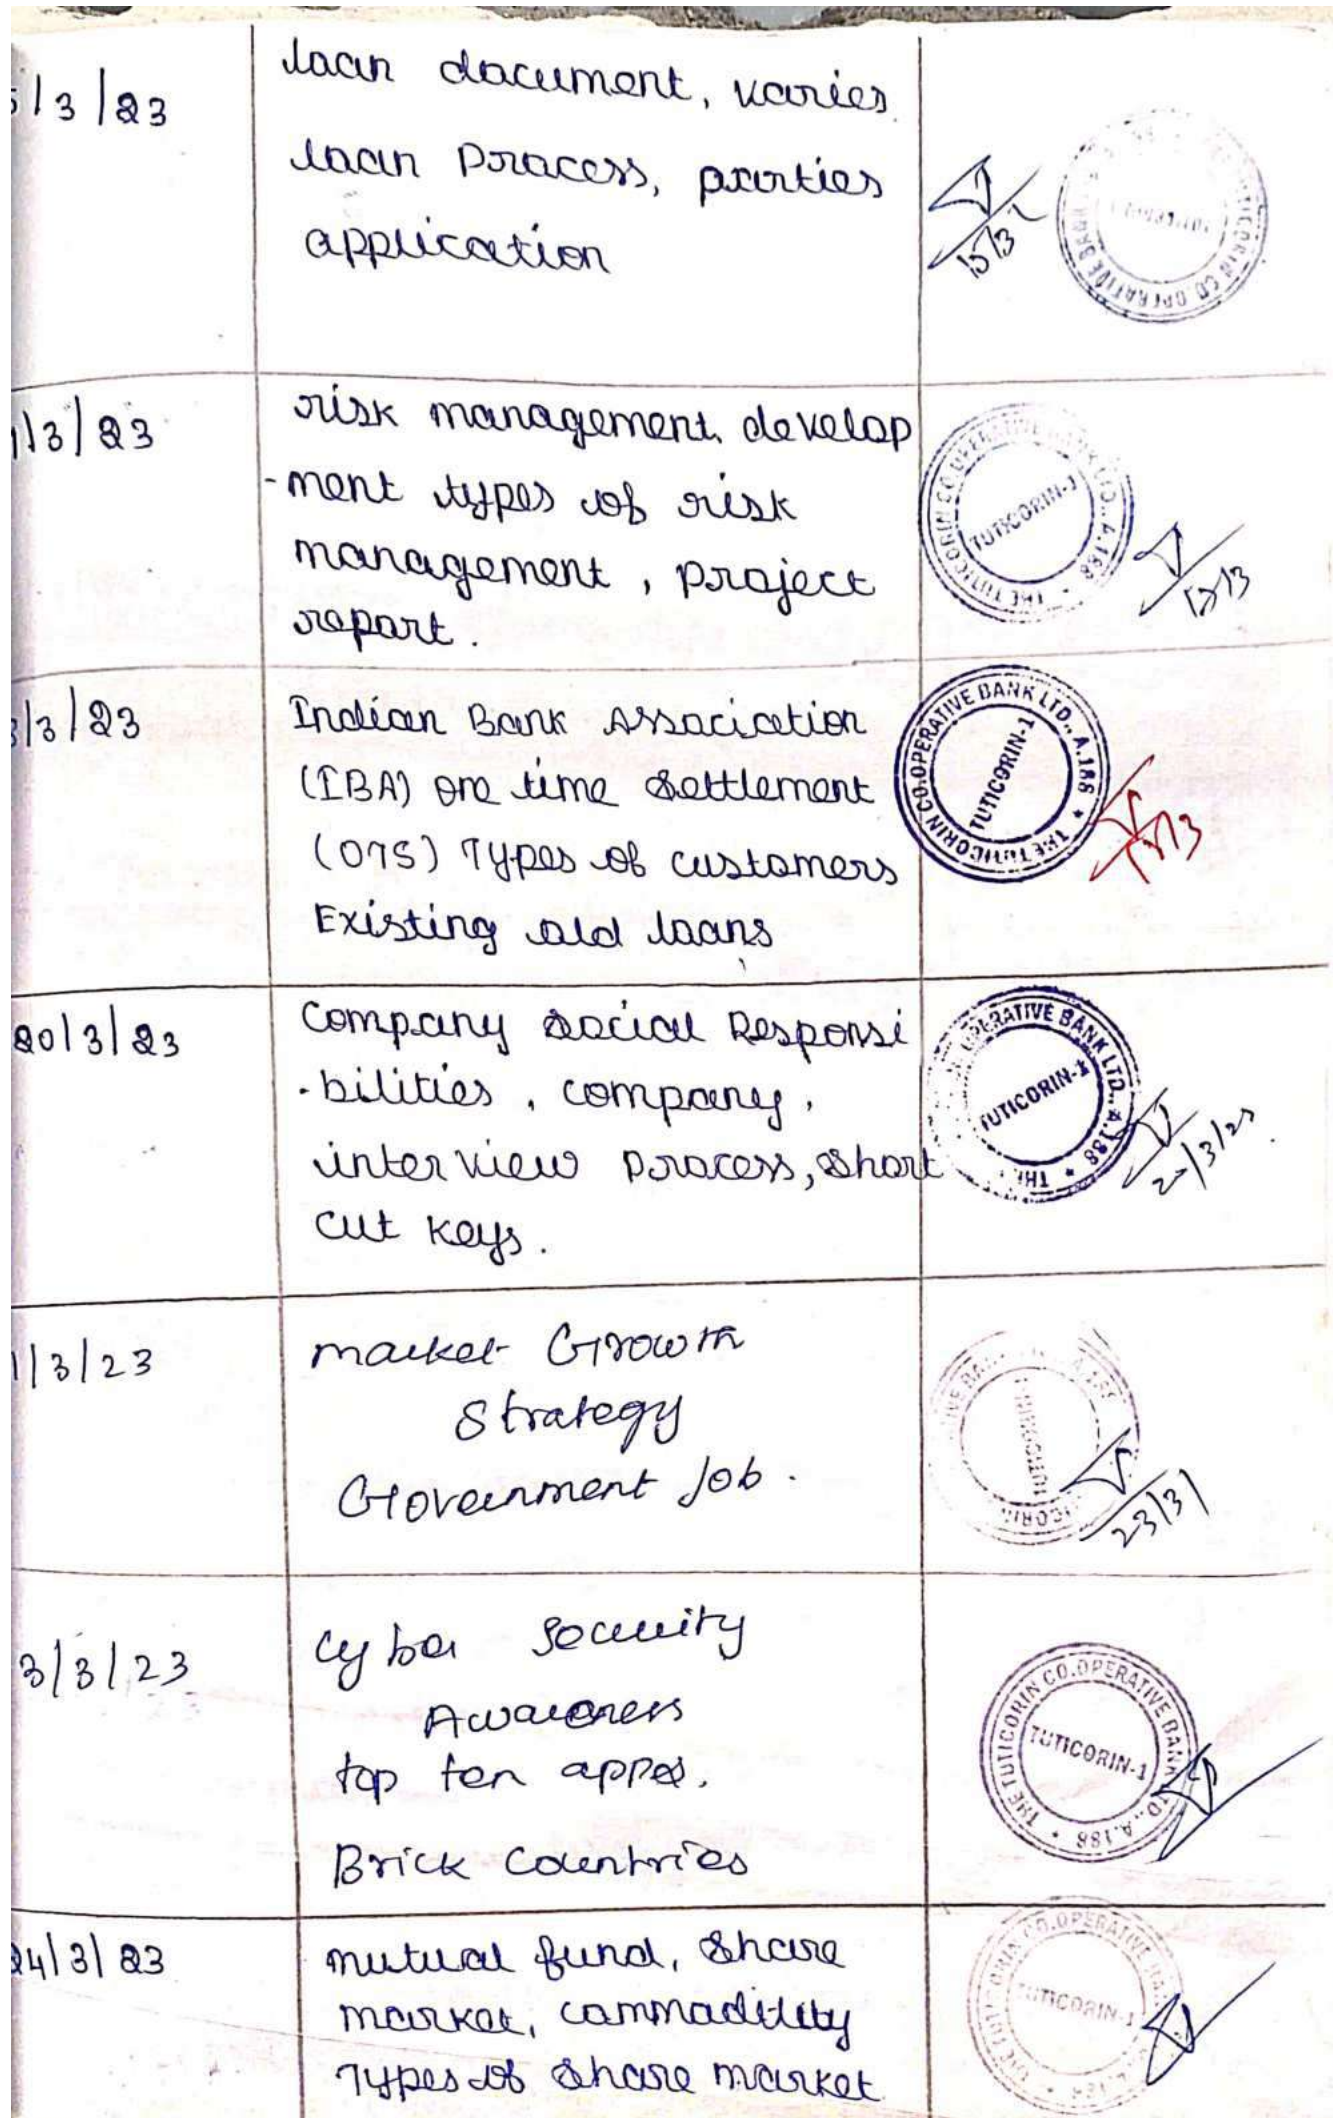 5/3/23
loan document, varies
loan Process, parties
application
15/3
THE TUTICORIN CO.OPERATIVE BANK
1/3/23
risk management, develop
-ment types of risk
management, project
report.
THE TUTICORIN CO.OPERATIVE BANK LTD., A.188 *
TUTICORIN-1
3/3/23
Indian Bank Association
(IBA) one time Settlement
(OTS) Types of customers
Existing old loans
THE TUTICORIN CO.OPERATIVE BANK LTD., A.188 *
TUTICORIN-1
20/3/23
Company social Responsi
-bilities, company,
interview process, short
cut keys.
THE OPERATIVE BANK LTD., A.188 *
TUTICORIN-1
20/3/23
1/3/23
market Growth
Strategy
Government Job.
TUTICORIN
23/3
3/3/23
Cyber Security
Awareness
top ten appes.
Brick Countries
THE TUTICORIN CO.OPERATIVE BANK LTD., A.188 *
TUTICORIN-1
24/3/23
mutual fund, Share
market, commadility
Types of Share market
THE TUTICORIN CO.OPERATIVE BANK
TUTICORIN-1